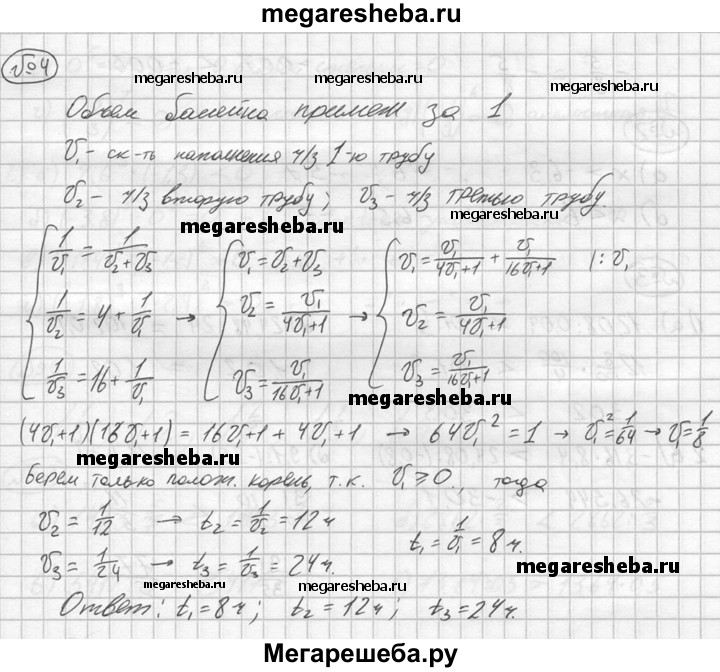 megaresheba.ru
№4
megaresheba.ru megaresheba.ru
Объем бассейна примем за 1
v₁ - ск-ть наполнения ч/з 1-ю трубу
v₂ - ч/з вторую трубу; v₃ - ч/з третью трубу.
megaresheba.ru megaresheba.ru
{ 1/v₁ = 1/(v₂+v₃) { v₁ = v₂+v₃ { v₁ = v₁/(4v₁+1) + v₁/(16v₁+1) |: v₁
1/v₂ = 4 + 1/v₁ → v₂ = v₁/(4v₁+1) → v₂ = v₁/(4v₁+1)
1/v₃ = 16 + 1/v₁ v₃ = v₁/(16v₁+1) v₃ = v₁/(16v₁+1)
megaresheba.ru
(4v₁+1)(16v₁+1) = 16v₁+1 + 4v₁+1 → 64v₁² = 1 → v₁² = 1/64 → v₁ = 1/8
megaresheba.ru
Берем только полож. корень, т.к. v₁ ≥ 0, тогда
v₂ = 1/12 → t₂ = 1/v₂ = 12 ч
t₁ = 1/v₁ = 8 ч.
v₃ = 1/24 → t₃ = 1/v₃ = 24 ч.
megaresheba.ru megaresheba.ru
Ответ: t₁ = 8 ч; t₂ = 12 ч; t₃ = 24 ч.
megaresheba.ru
Мегарешеба.ру